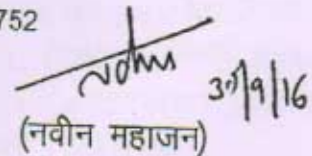 752
30/9/16
(नवीन महाजन)